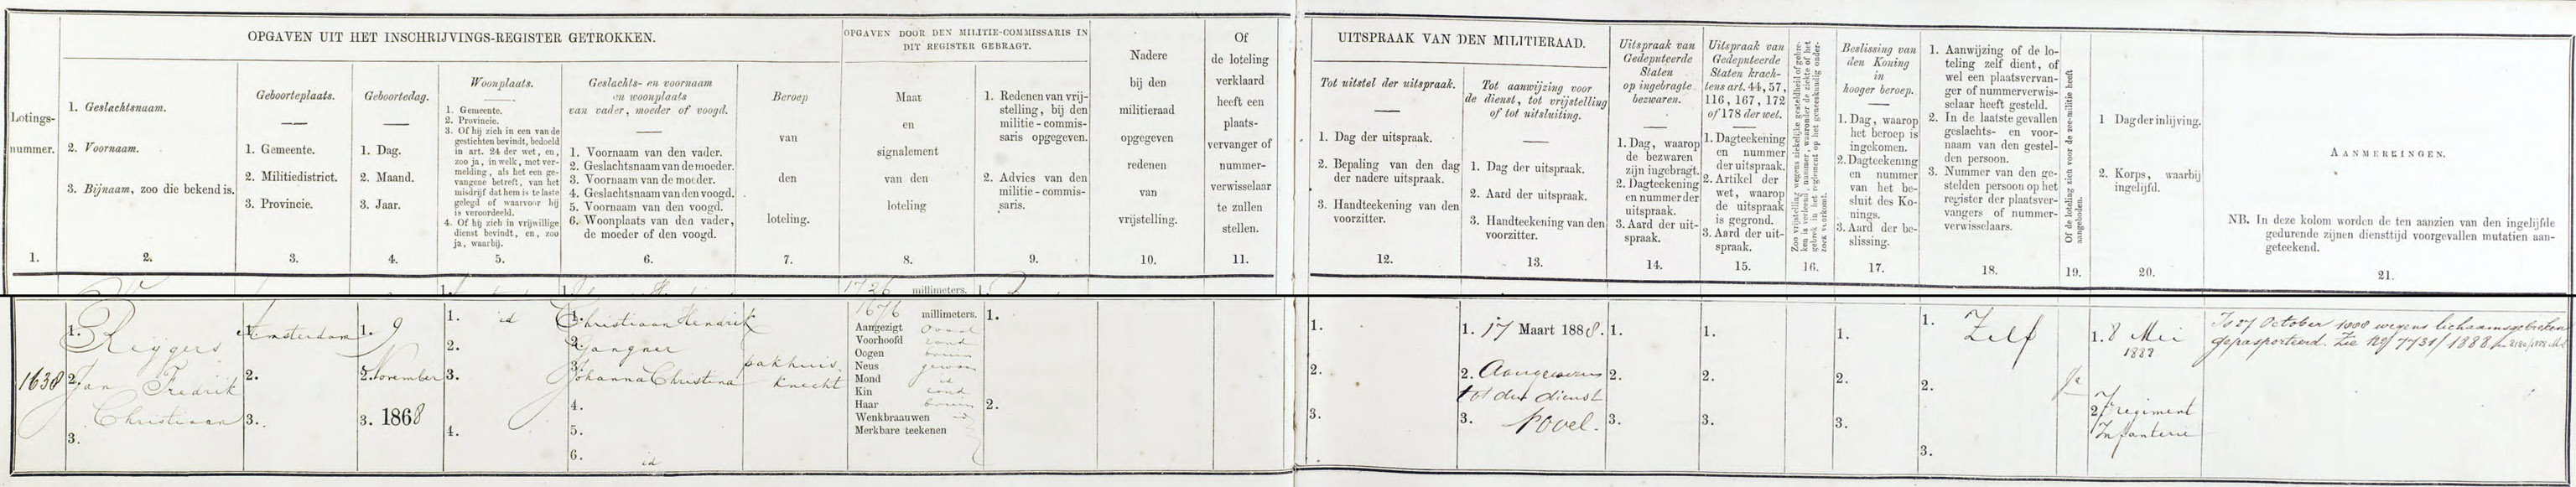 OPGAVEN UIT HET INSCHRIJVINGS-REGISTER GETROKKEN.
Lotings-
nummer.
1.
1. Geslachtsnaam.
2. Voornaam.
3. Bijnaam, zoo die bekend is.
2.
Geboorteplaats.
1. Gemeente.
2. Militiedistrict.
3. Provincie.
3.
Geboortedag.
1. Dag.
2. Maand.
3. Jaar.
4.
Woonplaats.
1. Gemeente.
2. Provincie.
3. Of hij zich in een van de
gestichten bevindt, bedoeld
in art. 24 der wet, en,
zoo ja, in welk, met ver-
melding, als het een ge-
vangene betreft, van het
misdrijf dat hem is te laste
gelegd of waarvoor hij
is veroordeeld.
4. Of hij zich in vrijwillige
dienst bevindt, en, zoo
ja, waarbij.
5.
Geslachts- en voornaam
en woonplaats
van vader, moeder of voogd.
1. Voornaam van den vader.
2. Geslachtsnaam van de moeder.
3. Voornaam van de moeder.
4. Geslachtsnaam van den voogd.
5. Voornaam van den voogd.
6. Woonplaats van den vader,
de moeder of den voogd.
6.
Beroep
van
den
loteling.
7.
OPGAVEN DOOR DEN MILITIE-COMMISSARIS IN
DIT REGISTER GEBRAGT.
Maat
en
signalement
van den
loteling
8.
1. Redenen van vrij-
stelling, bij den
militie-commis-
saris opgegeven.
2. Advies van den
militie-commis-
saris.
9.
Nadere
bij den
militieraad
opgegeven
redenen
van
vrijstelling.
10.
Of
de loteling
verklaard
heeft een
plaats-
vervanger of
nummer-
verwisselaar
te zullen
stellen.
11.
UITSPRAAK VAN DEN MILITIERAAD.
Tot uitstel der uitspraak.
1. Dag der uitspraak.
2. Bepaling van den dag
der nadere uitspraak.
3. Handteekening van den
voorzitter.
12.
Tot aanwijzing voor
de dienst, tot vrijstelling
of tot uitsluiting.
1. Dag der uitspraak.
2. Aard der uitspraak.
3. Handteekening van den
voorzitter.
13.
Uitspraak van
Gedeputeerde
Staten
op ingebragte
bezwaren.
1. Dag, waarop
de bezwaren
zijn ingebragt.
2. Dagteekening
en nummer der
uitspraak.
3. Aard der uit-
spraak.
14.
Uitspraak van
Gedeputeerde
Staten krach-
tens art. 44, 57,
116, 167, 172
of 178 der wet.
1. Dagteekening
en nummer
der uitspraak.
2. Artikel der
wet, waarop
de uitspraak
is gegrond.
3. Aard der uit-
spraak.
15.
Zoo vrijstelling wegens ziekelijke gesteldheid of gebre-
ken is verleend, nummer, waaronder de ziekte of het
gebrek in het reglement op het geneeskundig onder-
zoek voorkomt.
16.
Beslissing van
den Koning
in
hooger beroep.
1. Dag, waarop
het beroep is
ingekomen.
2. Dagteekening
en nummer
van het be-
sluit des Ko-
nings.
3. Aard der be-
slissing.
17.
1. Aanwijzing of de lo-
teling zelf dient, of
wel een plaatsvervan-
ger of nummerverwis-
selaar heeft gesteld.
2. In de laatste gevallen
geslachts- en voor-
naam van den gestel-
den persoon.
3. Nummer van den ge-
stelden persoon op het
register der plaatsver-
vangers of nummer-
verwisselaars.
18.
Of de loteling zich voor de zee-militie heeft
aangeboden.
19.
1 Dag der inlijving.
2. Korps, waarbij
ingelijfd.
20.
AANMERKINGEN.
NB. In deze kolom worden de ten aanzien van den ingelijfde
gedurende zijnen diensttijd voorgevallen mutatien aan-
geteekend.
21.
1726 millimeters. 1.
1638
1. Reijgers
2. Jan Fredrik
Christiaan
3.
1. Amsterdam
2.
3.
1. 9
2. November
3. 1868
1. id
2.
3.
4.
1. Christiaan Hendrik
2. Gangner
3. Johanna Christina
4.
5.
6. id
pakhuis-
knecht
1676 millimeters.
Aangezigt ovaal
Voorhoofd rond
Oogen bruin
Neus gewoon
Mond id
Kin rond
Haar bruin
Wenkbraauwen id
Merkbare teekenen
1.
2.
1.
2.
3.
1. 17 Maart 1888.
2. Aangewezen
tot den dienst
3. Povel.
1.
2.
3.
1.
2.
3.
1.
2.
3.
1. Zelf
2.
3.
Ja
1. 8 Mei
1888
2. 7 regiment
Infanterie
Is 27 October 1888 wegens lichaamsgebreken
gepasporteerd. Zie 7731/1888